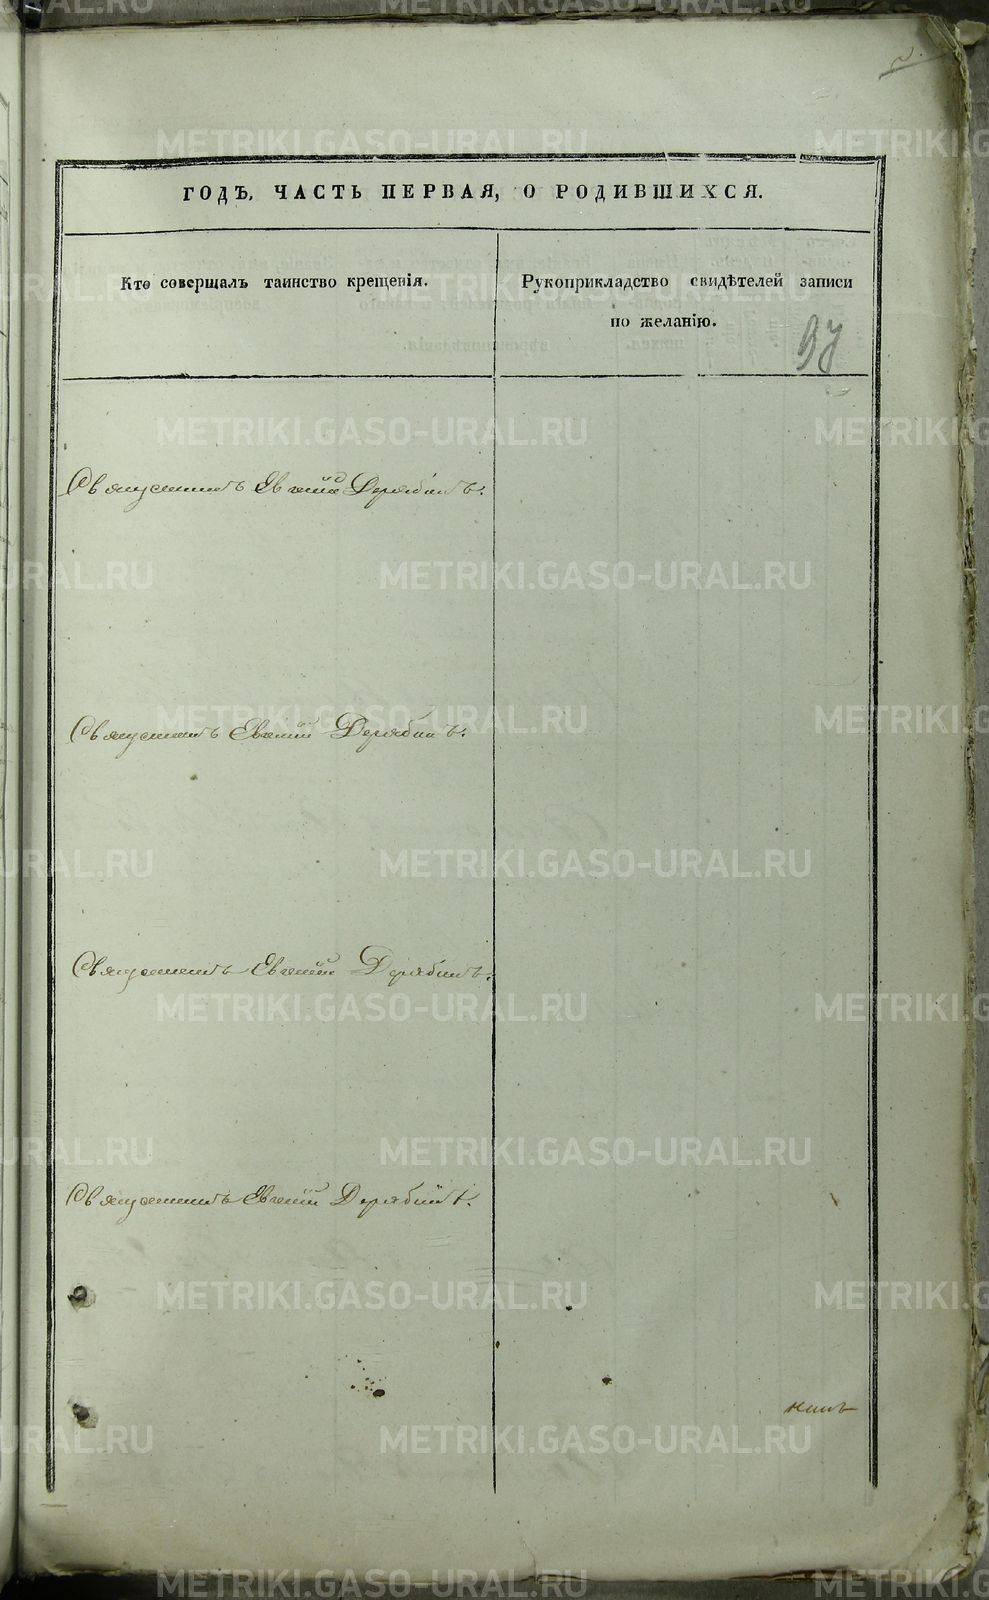 ГОДЪ. ЧАСТЬ ПЕРВАЯ, О РОДИВШИХСЯ.
Кто совершалъ таинство крещенія.
Рукоприкладство свидѣтелей записи
по желанію.
97
Священникъ Евгеній Дерябинъ.
Священникъ Евгеній Дерябинъ.
Священникъ Евгеній Дерябинъ.
Священникъ Евгеній Дерябинъ.
METRIKI.GASO-URAL.RU